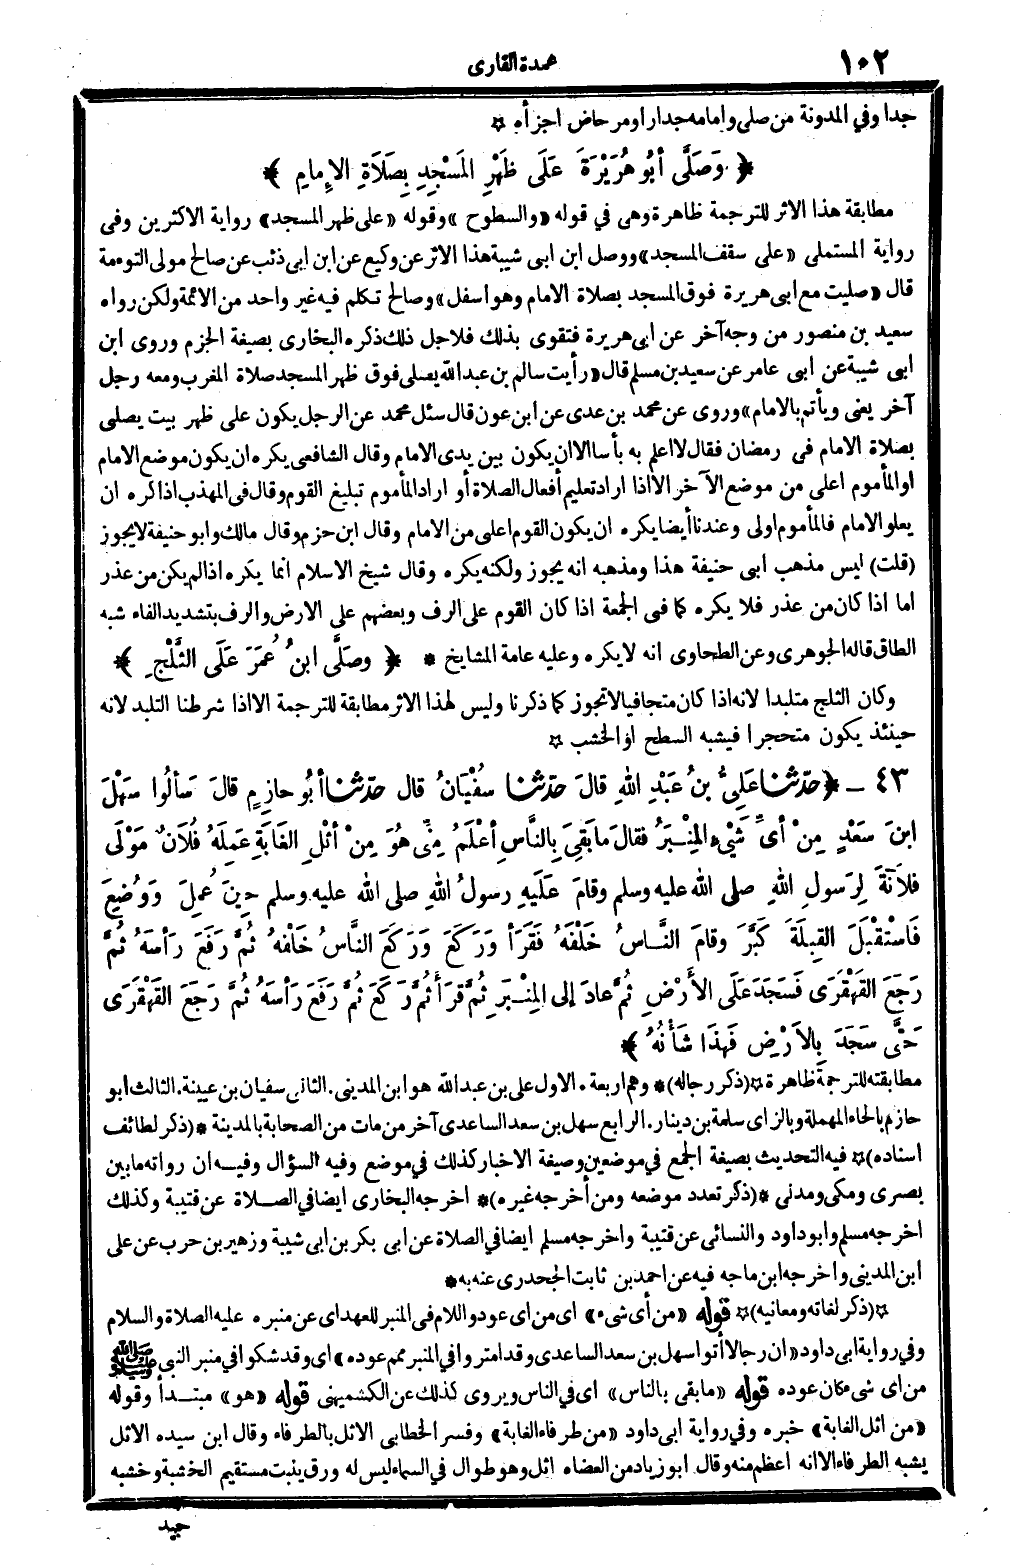 ١٠٢
عمدة القارى
جدا وفي المدونة من صلى وامامه جدار او مرحاض اجزأه ☆
﴿ وَصَلَّى أبُو هُرَيْرَةَ عَلَى ظَهْرِ المَسْجِدِ بِصَلَاةِ الإِمامِ ﴾
مطابقة هذا الاثر للترجمة ظاهرة وهى في قوله «والسطوح» وقوله «على ظهر المسجد» رواية الاكثرين وفى
رواية المستملى «على سقف المسجد» ووصل ابن ابى شيبة هذا الاثر عن وكيع عن ابن ابى ذئب عن صالح مولى التوءمة
قال «صليت مع ابى هريرة فوق المسجد بصلاة الامام وهو اسفل» وصالح تكلم فيه غير واحد من الائمة ولكن رواه
سعيد بن منصور من وجه آخر عن ابى هريرة فتقوى بذلك فلاجل ذلك ذكره البخارى بصيغة الجزم وروى ابن
ابى شيبة عن ابى عامر عن سعيد بن مسلم قال «رأيت سالم بن عبد الله يصلى فوق ظهر المسجد صلاة المغرب ومعه رجل
آخر يعنى ويأتم بالامام» وروى عن محمد بن عدى عن ابن عون قال سئل محمد عن الرجل يكون على ظهر بيت يصلى
بصلاة الامام فى رمضان فقال لا اعلم به بأسا الا ان يكون بين يدى الامام وقال الشافعى يكره ان يكون موضع الامام
او المأموم اعلى من موضع الآخر الا اذا اراد تعليم أفعال الصلاة أو اراد المأموم تبليغ القوم وقال فى المهذب اذا كره ان
يعلو الامام فالمأموم اولى وعندنا أيضا يكره ان يكون القوم اعلى من الامام وقال ابن حزم وقال مالك وابو حنيفة لا يجوز
(قلت) ليس مذهب ابى حنيفة هذا ومذهبه انه يجوز ولكنه يكره وقال شيخ الاسلام انما يكره اذا لم يكن من عذر
اما اذا كان من عذر فلا يكره كما فى الجمعة اذا كان القوم على الرف وبعضهم على الارض والرف بتشديد الفاء شبه
الطاق قاله الجوهرى وعن الطحاوى انه لا يكره وعليه عامة المشايخ * ﴿ وصَلَّى ابنُ عُمَرَ عَلَى الثَّلْجِ ﴾
وكان الثلج متلبدا لانه اذا كان متجافيا لا تجوز كما ذكرنا وليس لهذا الاثر مطابقة للترجمة الا اذا شرطنا التلبد لانه
حينئذ يكون متحجرا فيشبه السطح او الخشب ☆
٤٣ ـ ﴿ حدّثنا عَلِيُّ بنُ عَبْدِ اللهِ قالَ حدّثنا سُفْيَانُ قال حدّثنا أبُو حازِمٍ قالَ سَألُوا سَهْلَ
ابنَ سَعْدٍ مِنْ أىِّ شَىْءٍ المِنْبَرُ فقالَ مابَقِىَ بِالنَّاسِ أعْلَمُ مِنِّى هُوَ مِنْ أثْلِ الغَابَةِ عَمِلَهُ فُلَانٌ مَوْلَى
فلَانَةَ لِرَسولِ اللهِ صلى الله عليه وسلم وقامَ عَلَيهِ رسولُ اللهِ صلى الله عليه وسلم حِينَ عُمِلَ وَوُضِعَ
فَاسْتَقْبَلَ القِبلَةَ كَبَّرَ وقامَ النَّاسُ خَلْفَهُ فَقَرَأ ورَكَعَ ورَكَعَ النَّاسُ خَلْفهُ ثُمَّ رَفَعَ رَأسَهُ ثُمَّ
رَجَعَ القَهْقَرَى فَسَجَدَ عَلَى الأَرْضِ ثُمَّ عادَ إلى المِنْبَرِ ثُمَّ قرَأ ثُمَّ رَكَعَ ثُمَّ رَفَعَ رَأسَهُ ثُمَّ رَجَعَ القَهْقَرَى
حَتَّى سَجَدَ بالأرْضِ فَهذَا شَأنُهُ ﴾
مطابقته للترجمة ظاهرة ☆ (ذكر رجاله) * وهم اربعة. الاول على بن عبد الله هو ابن المدينى. الثانى سفيان بن عيينة. الثالث ابو
حازم بالحاء المهملة وبالزاى سلمة بن دينار. الرابع سهل بن سعد الساعدى آخر من مات من الصحابة بالمدينة * (ذكر لطائف
اسناده) ☆ فيه التحديث بصيغة الجمع في موضعين وصيغة الاخبار كذلك في موضع وفيه السؤال وفيه ان رواته ما بين
بصرى ومكى ومدنى * (ذكر تعدد موضعه ومن أخرجه غيره) * اخرجه البخارى ايضا في الصلاة عن قتيبة وكذلك
اخرجه مسلم وابو داود والنسائى عن قتيبة واخرجه مسلم ايضا في الصلاة عن ابى بكر بن ابى شيبة وزهير بن حرب عن على
ابن المدينى واخرجه ابن ماجه فيه عن احمد بن ثابت الجحدرى عنه به *
☆ (ذكر لغاته ومعانيه) ☆ قوله «من أى شىء» اى من اى عود واللام فى المنبر للعهد اى عن منبره عليه الصلاة والسلام
وفي رواية ابى داود «ان رجالا أتوا سهل بن سعد الساعدى وقد امتروا في المنبر مم عوده» اى وقد شكوا في منبر النبى ﷺ
من اى شى مكان عوده قوله «ما بقى بالناس» اى في الناس ويروى كذلك عن الكشميهنى قوله «هو» مبتدأ وقوله
«من اثل الغابة» خبره وفي رواية ابى داود «من طرفاء الغابة» وفسر الخطابى الاثل بالطرفاء وقال ابن سيده الاثل
يشبه الطرفاء الا انه اعظم منه وقال ابو زياد من العضاه اثل وهو طوال في السماء ليس له ورق ينبت مستقيم الخشبة وخشبه
جيد